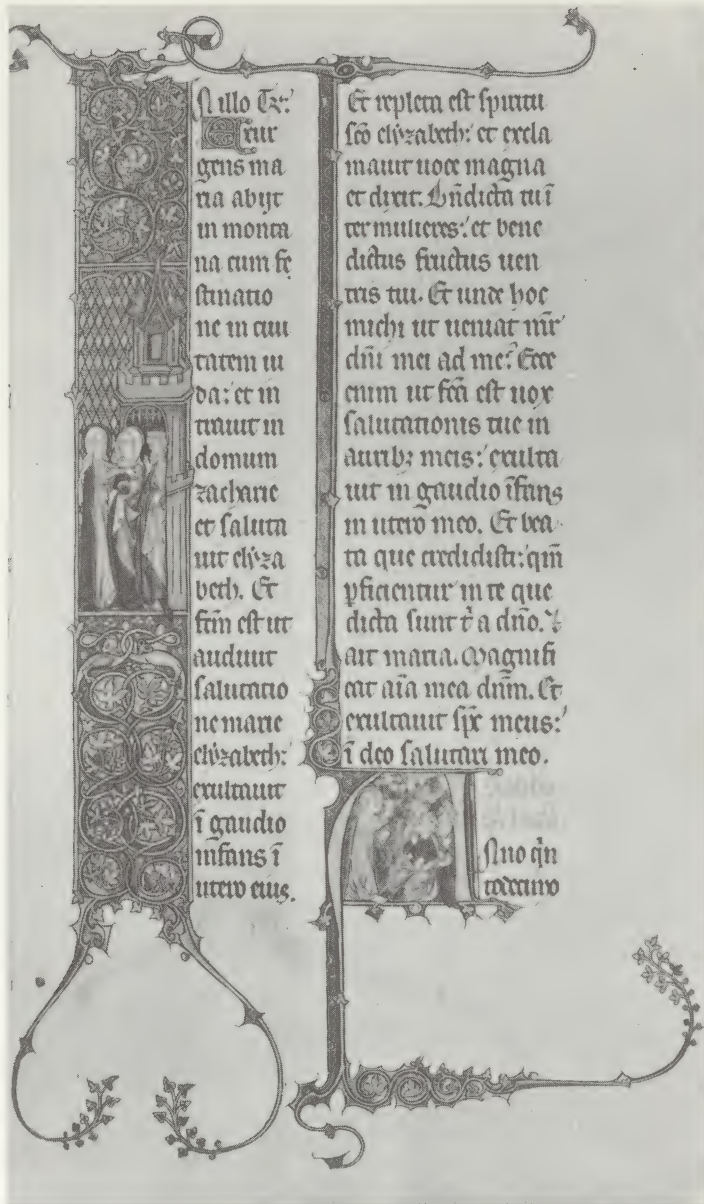 N illo t̄r̄:
Exur
gens ma
ria abijt
in monta
na cum fe
stinatio
ne in ciui
tatem iu
da: et in
trauit in
domum
zacharie
et saluta
uit elyza
beth. Et
fc̄m est ut
audiuit
salutatio
ne marie
elyzabeth:
exultauit
ī gaudio
infans ī
utero eius.
Et repleta est spiritu
sc̄o elyzabeth: et excla
mauit uoce magna
et dixit. Bn̄dicta tu ī
ter mulieres: et bene
dictus fructus uen
tris tui. Et unde hoc
michi ut ueniat mr̄
dn̄i mei ad me? Ecce
enim ut fc̄a est uox
salutationis tue in
aurib; meis: exulta
uit in gaudio īfans
in utero meo. Et bea
ta que credidisti: qm̄
ꝑficientur in te que
dicta sunt t̄ a dn̄o. Et
ait maria. Magnifi
cat aīa mea dn̄m. Et
exultauit sp̄c meus:
ī deo salutari meo.
Anno qīn
todecimo